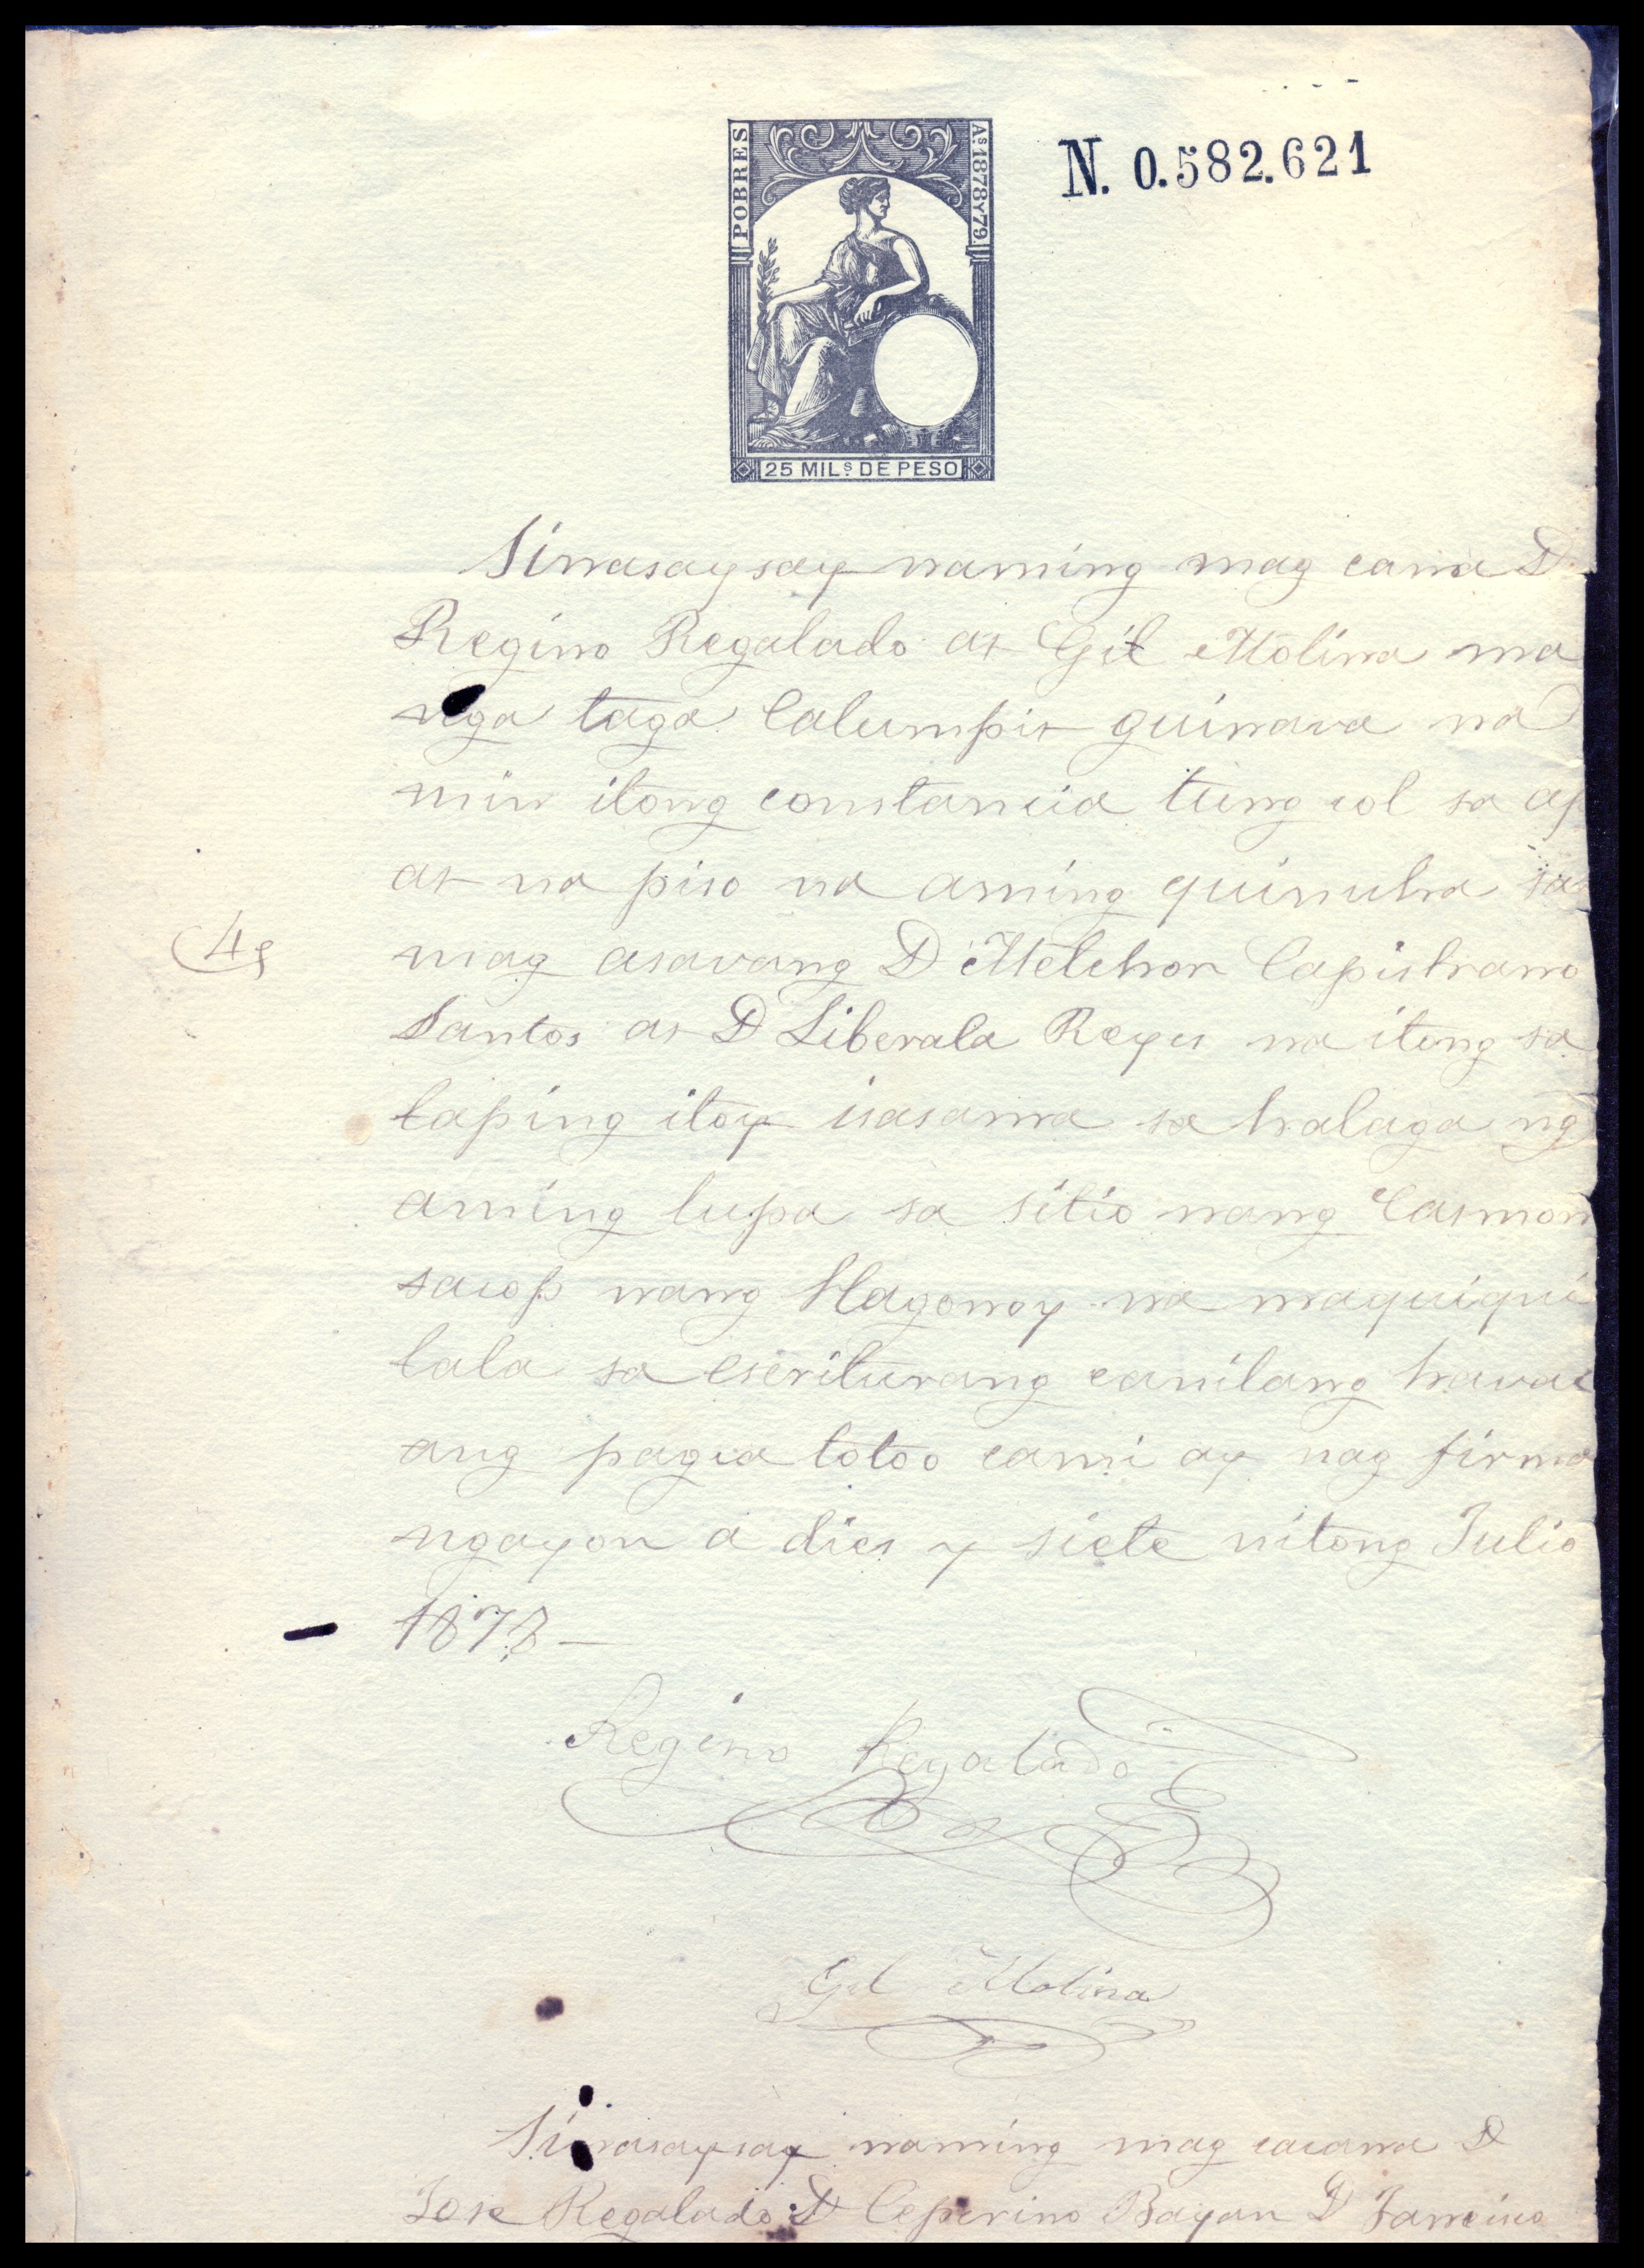 POBRES
Aˢ 1878 Y 79
N. 0.582.621
25 MILˢ DE PESO
Sinasaysay naming mag cama D.
Regino Regalado at Gil Molina ma
nga taga Calumpit guinava na
min itong constancia tung col sa ap
at na piso na aming quinuha sa
4 mag asavang D Melchor Capistrano
Santos at D Liberala Reyes na itong sa
laping itoy isasama sa halaga ng̃
aming lupa sa sitio nang
sacop nang Hagonoy na maquiqui
lala sa escriturang canilang havac
ang pagca totoo cami ay nag firma
ngayon a dies y siete nitong Julio
1878 —
Regino Regalado
Gil Molina
Sinasaysay naming mag cacama D
Jose Regalado D Ceperino Bayan D